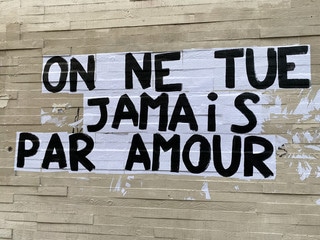 ON NE TUE
JAMAiS
PAR AMOUR